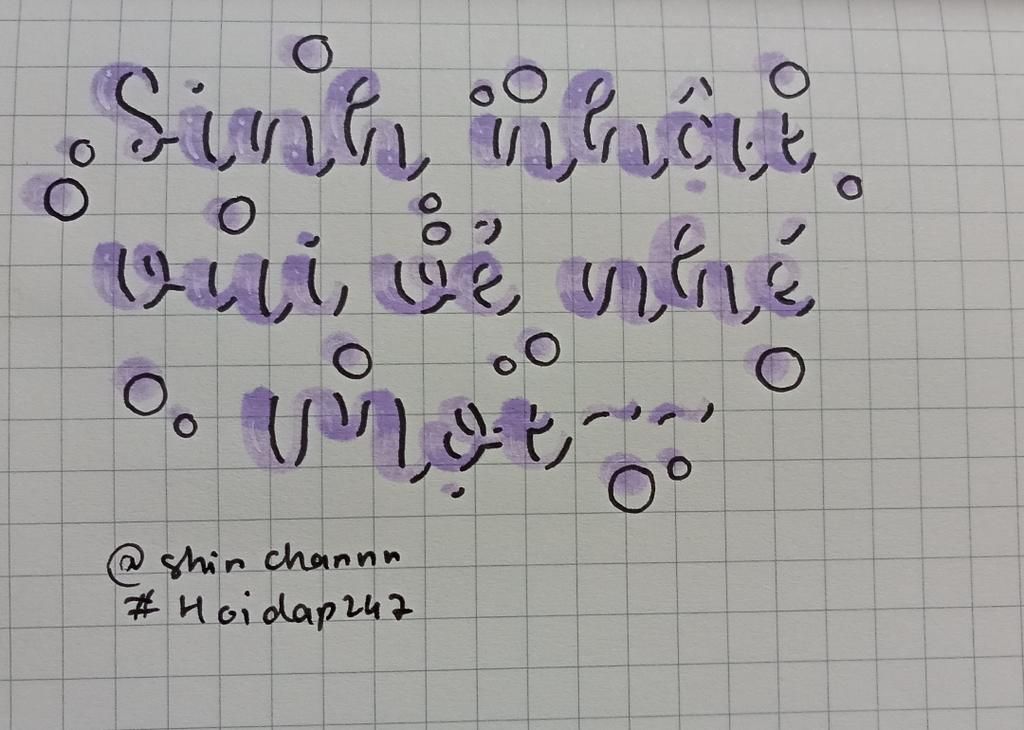 Sinh nhật
vui vẻ nhé
Mợt ----
@ shin channn
# Hoidap247